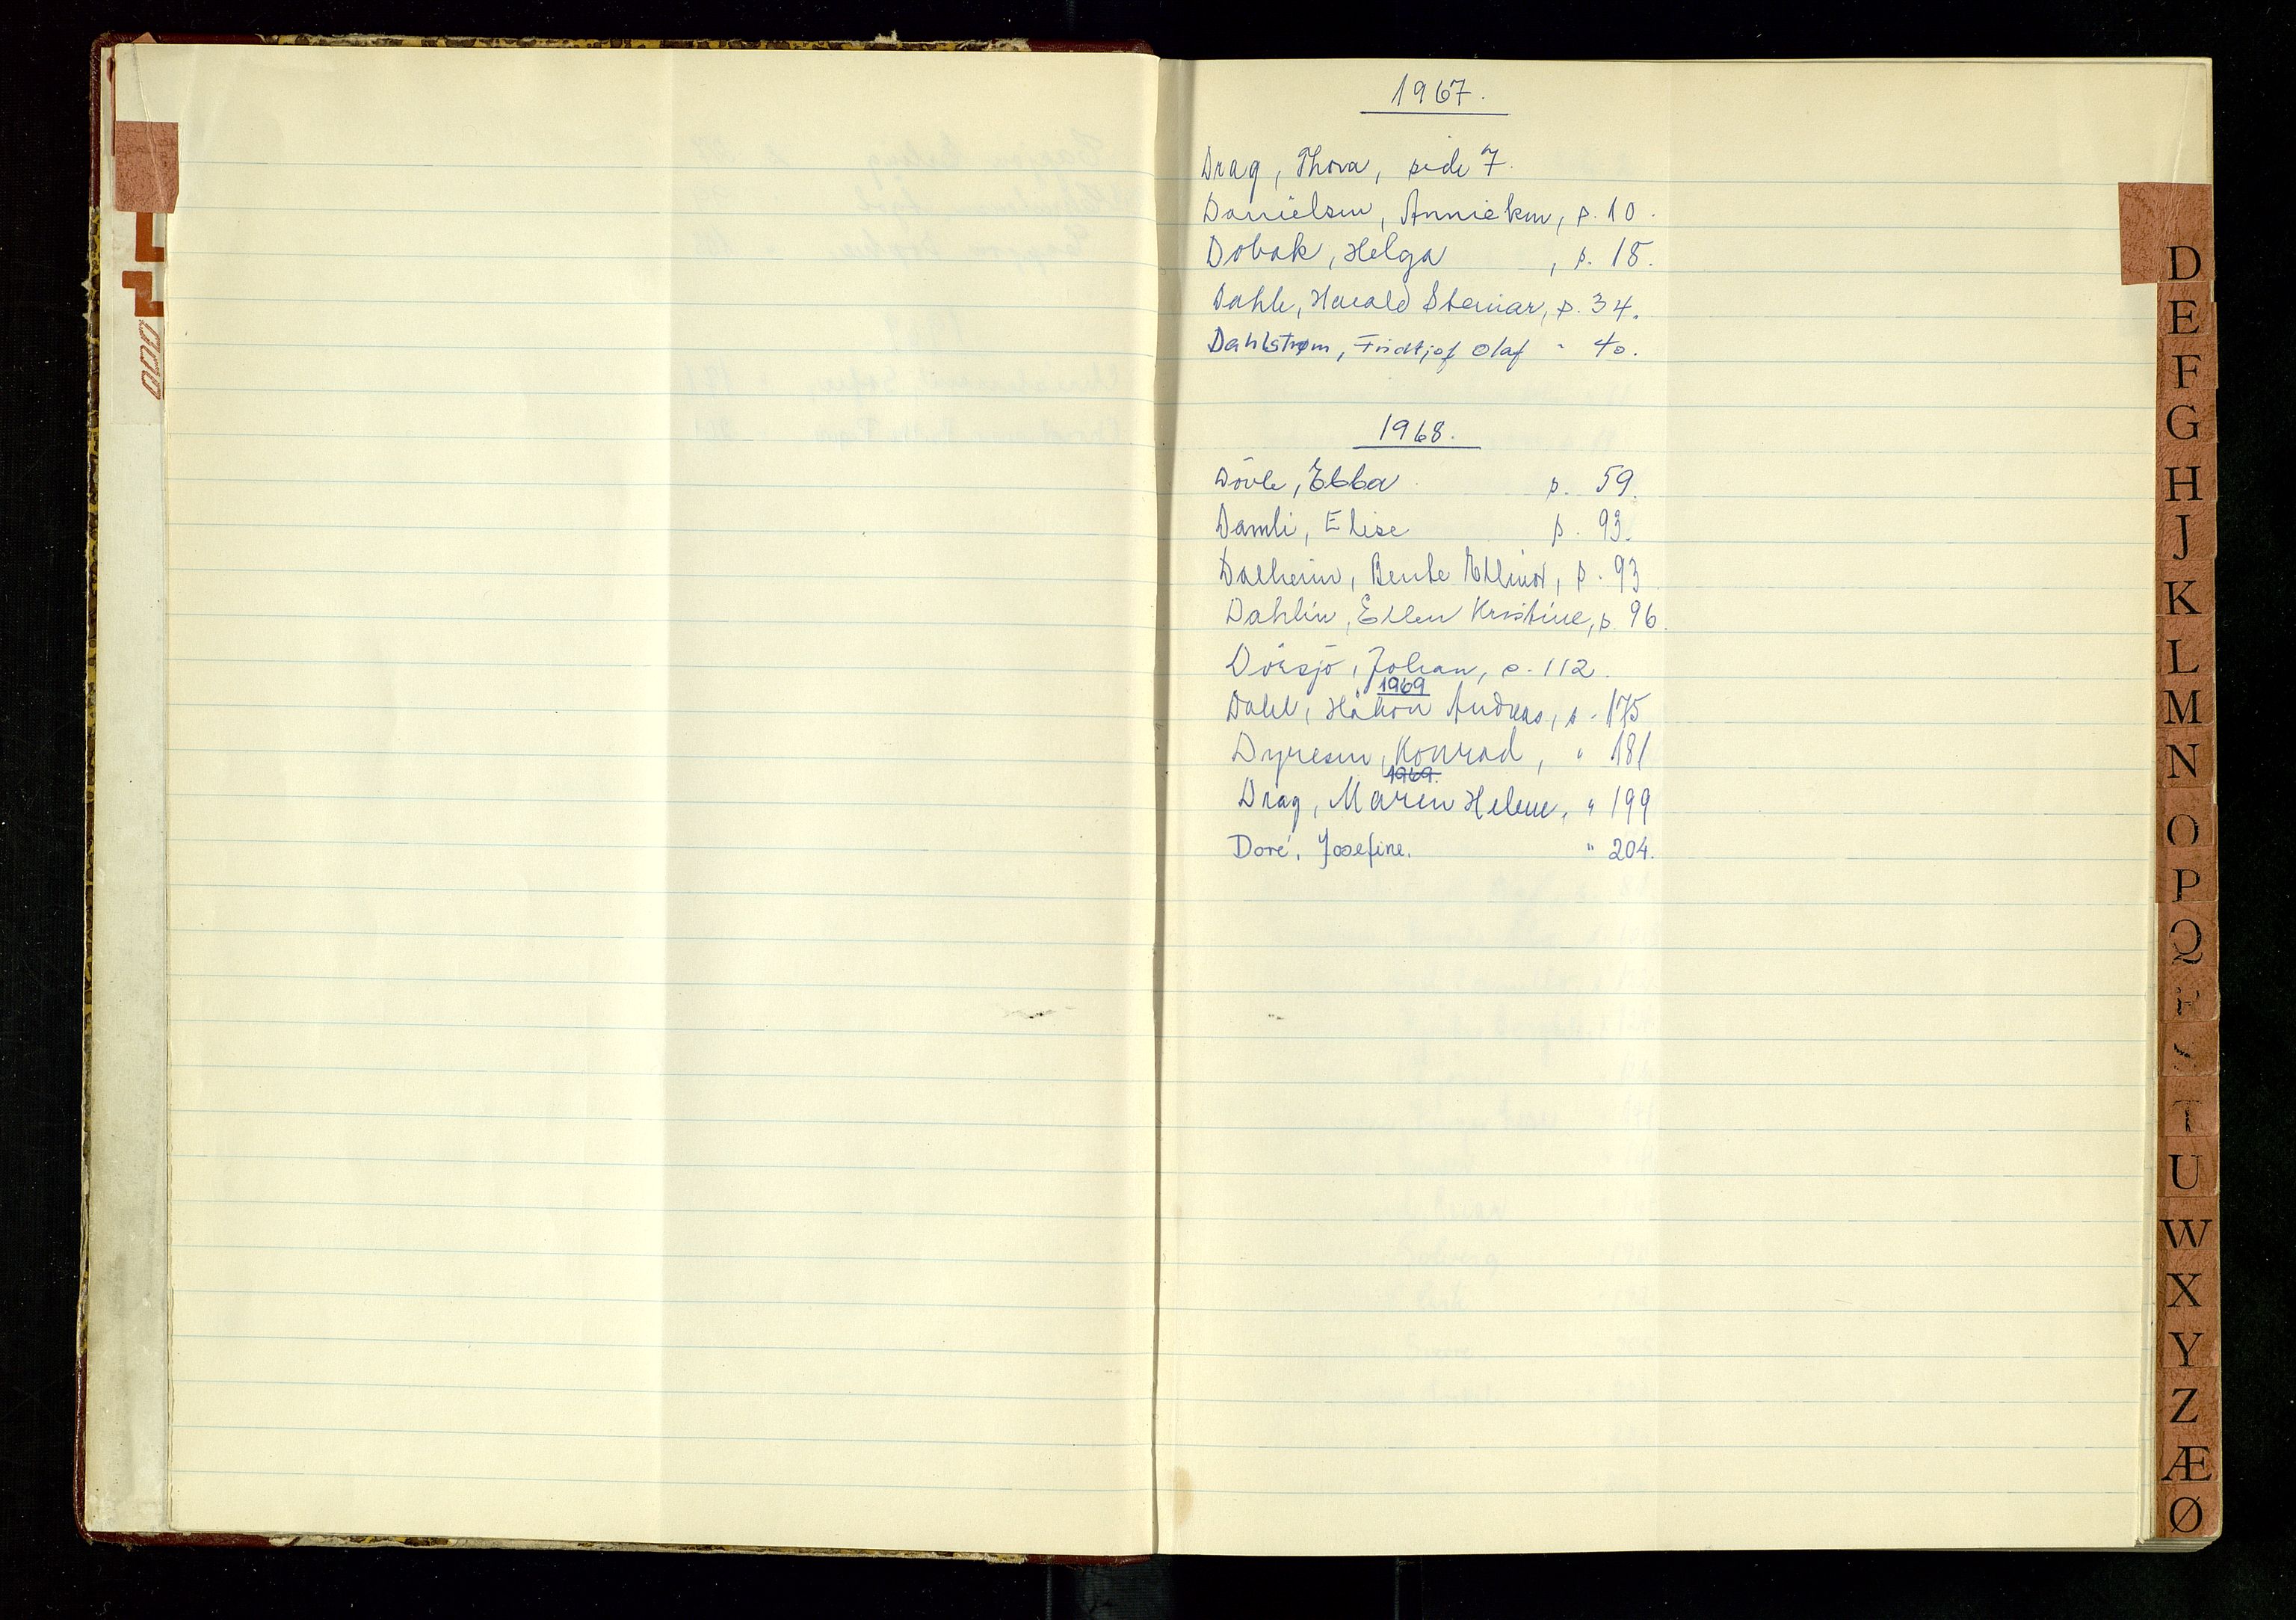 1967.
Drag, Thora, side 7.
Danielsen, Annieken, p. 10.
Dobak, Helga , p. 18.
Dahle, Harald Steinar, p. 34.
Dahlstrøm, Fridtjof Olaf " 40.
1968.
Dövle, Ebba p. 59.
Damli, Elise p. 93.
Dalheim, Bente Ellinor, p. 93
Dahlin, Ellen Kristine, p. 96.
Johan, p. 112.
1969
Dahl, Håkon Andreas, p. 175
Dyresen, Konrad, " 181
1969.
Drag, Maren Helene, " 199
Doré, Josefine. " 204.
D
E
F
G
H
J
K
L
M
N
O
P
Q
R
S
T
U
W
X
Y
Z
Æ
Ø